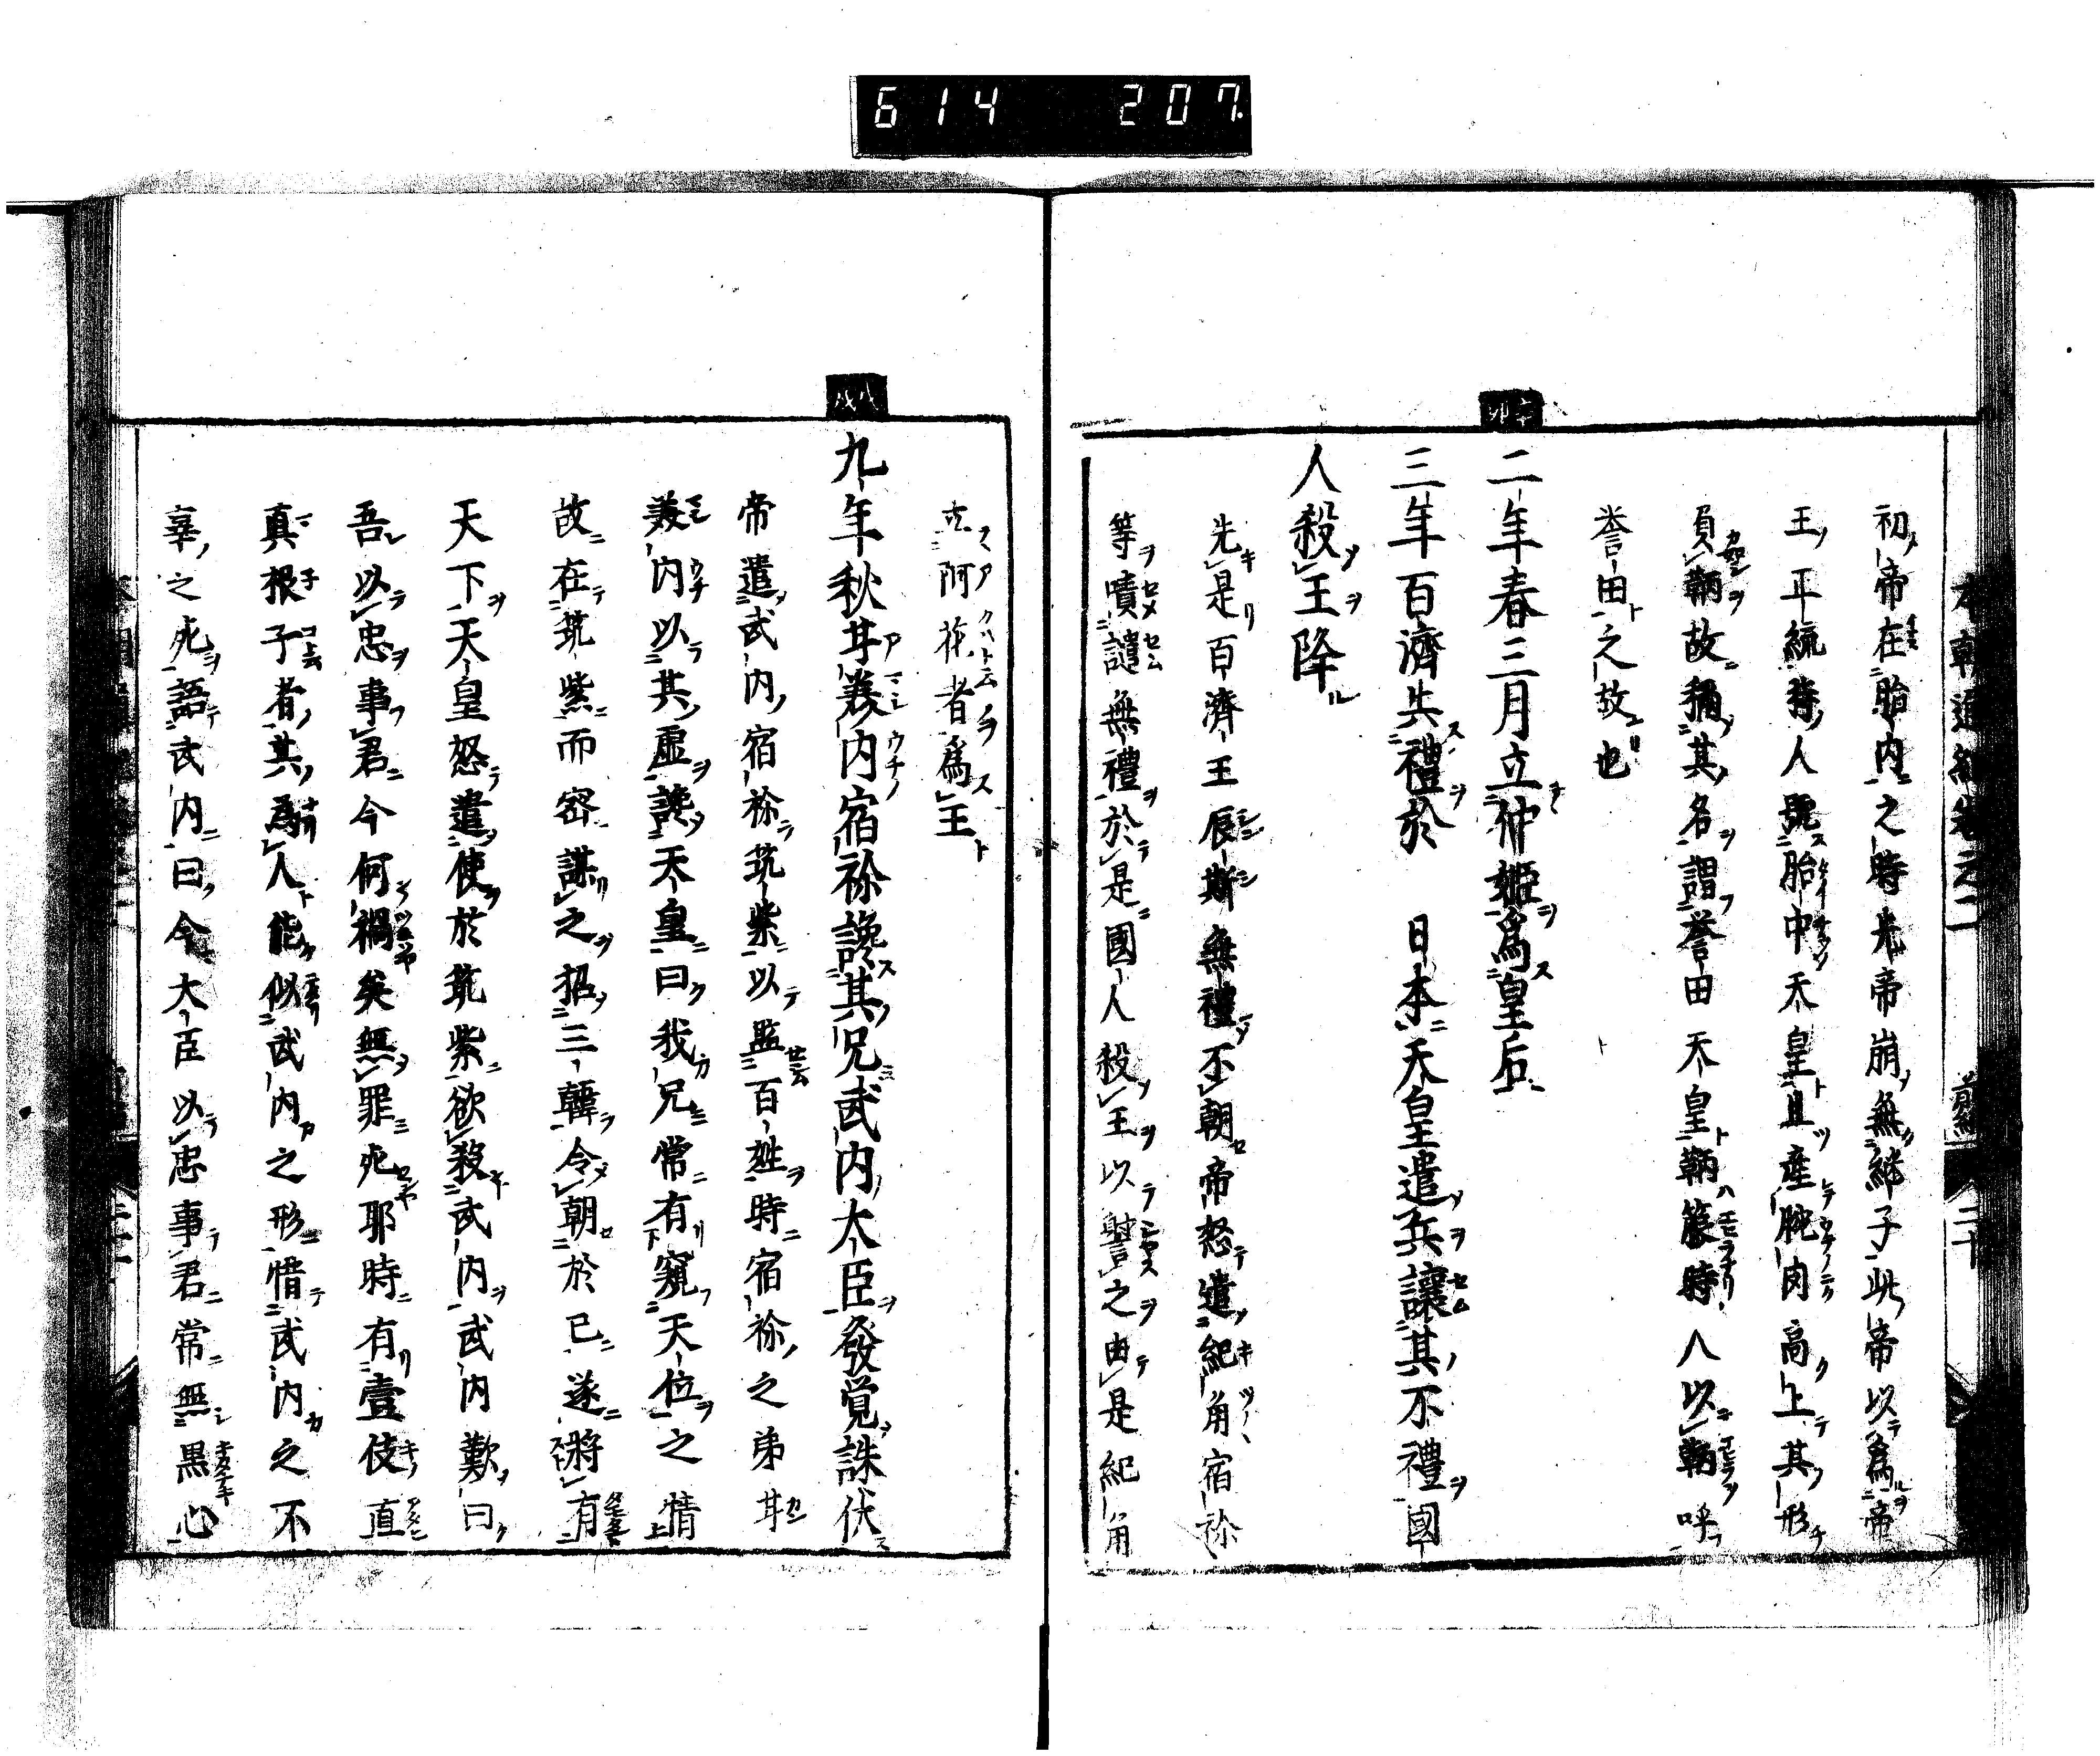 614 207
本朝通紀卷之二 前編 二十
初帝在胎内之時先帝崩無継子此帝以爲帝
王正統時人號胎中天皇且產腕肉高上其形
負鞆故稱其名謂誉田天皇鞆褒時人以鞆呼
誉田之故也
二年春三月立仲姫爲皇后
三年百濟失禮於 日本天皇遣兵讓其不禮國
人殺王降
先是百濟王辰斯無禮不朝帝怒遣紀角宿祢
等嘖譴無禮於是國人殺王以讋之由是紀角
立阿花者爲王
九年秋甘美内宿祢讒其兄武内大臣發覚誅伏
帝遣武内宿祢筑紫以監百姓時宿祢之弟甘
美内以其虚讒天皇曰我兄常有窺天位之情
故在筑紫而密謀之招三韓令朝於己遂將有
天下天皇怒遣使於筑紫欲殺武内武内歎曰
吾以忠事君今何禍矣無罪死耶時有壹伎直
真根子者其爲人能似武内之形惜武内之不
辜之死語武内曰今大臣以忠事君常無黒心